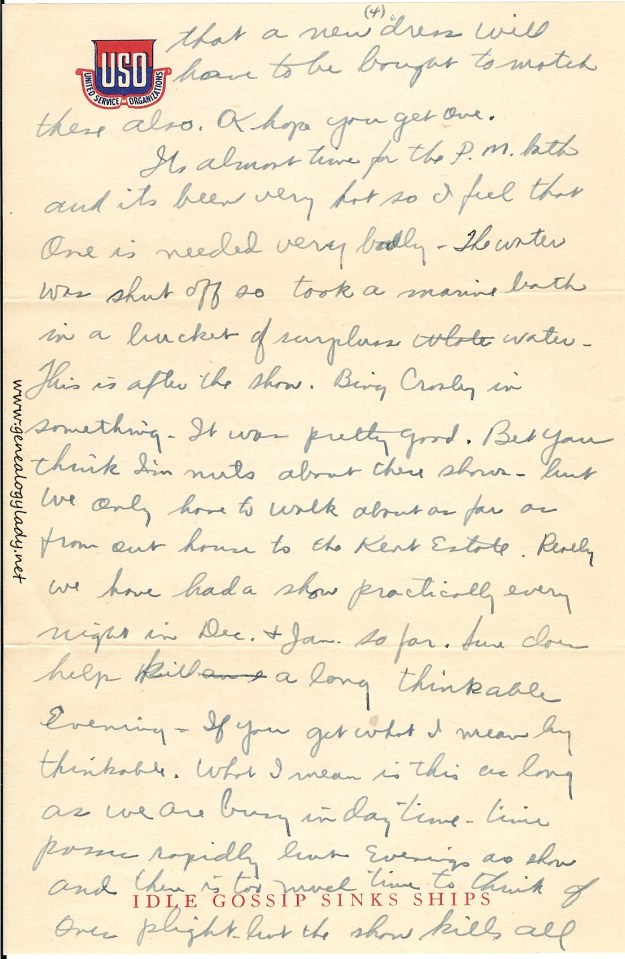 (4)
USO
UNITED SERVICE ORGANIZATIONS
that a new dress will
have to be bought to match
these also. & hope you get one.
Its almost time for the P.M. bath
and its been very hot so I feel that
One is needed very badly - The water
was shut off so took a marine bath
in a bucket of surpluss water -
This is after the show. Bing Crosby in
something - It was pretty good. Bet you
think I'm nuts about these shows - but
we only have to walk about as far as
from out house to the Kent Estate. Really
we have had a show practically every
night in Dec. & Jan. so far. Sure does
help kill a long thinkable
Evening - If you get what I mean by
thinkable. What I mean is this as long
as we are busy in day time - time
passes rapidly but Evenings are slow
and then is too much time to think of
Ones plight - but the show kills all
IDLE GOSSIP SINKS SHIPS
www.genealogylady.net